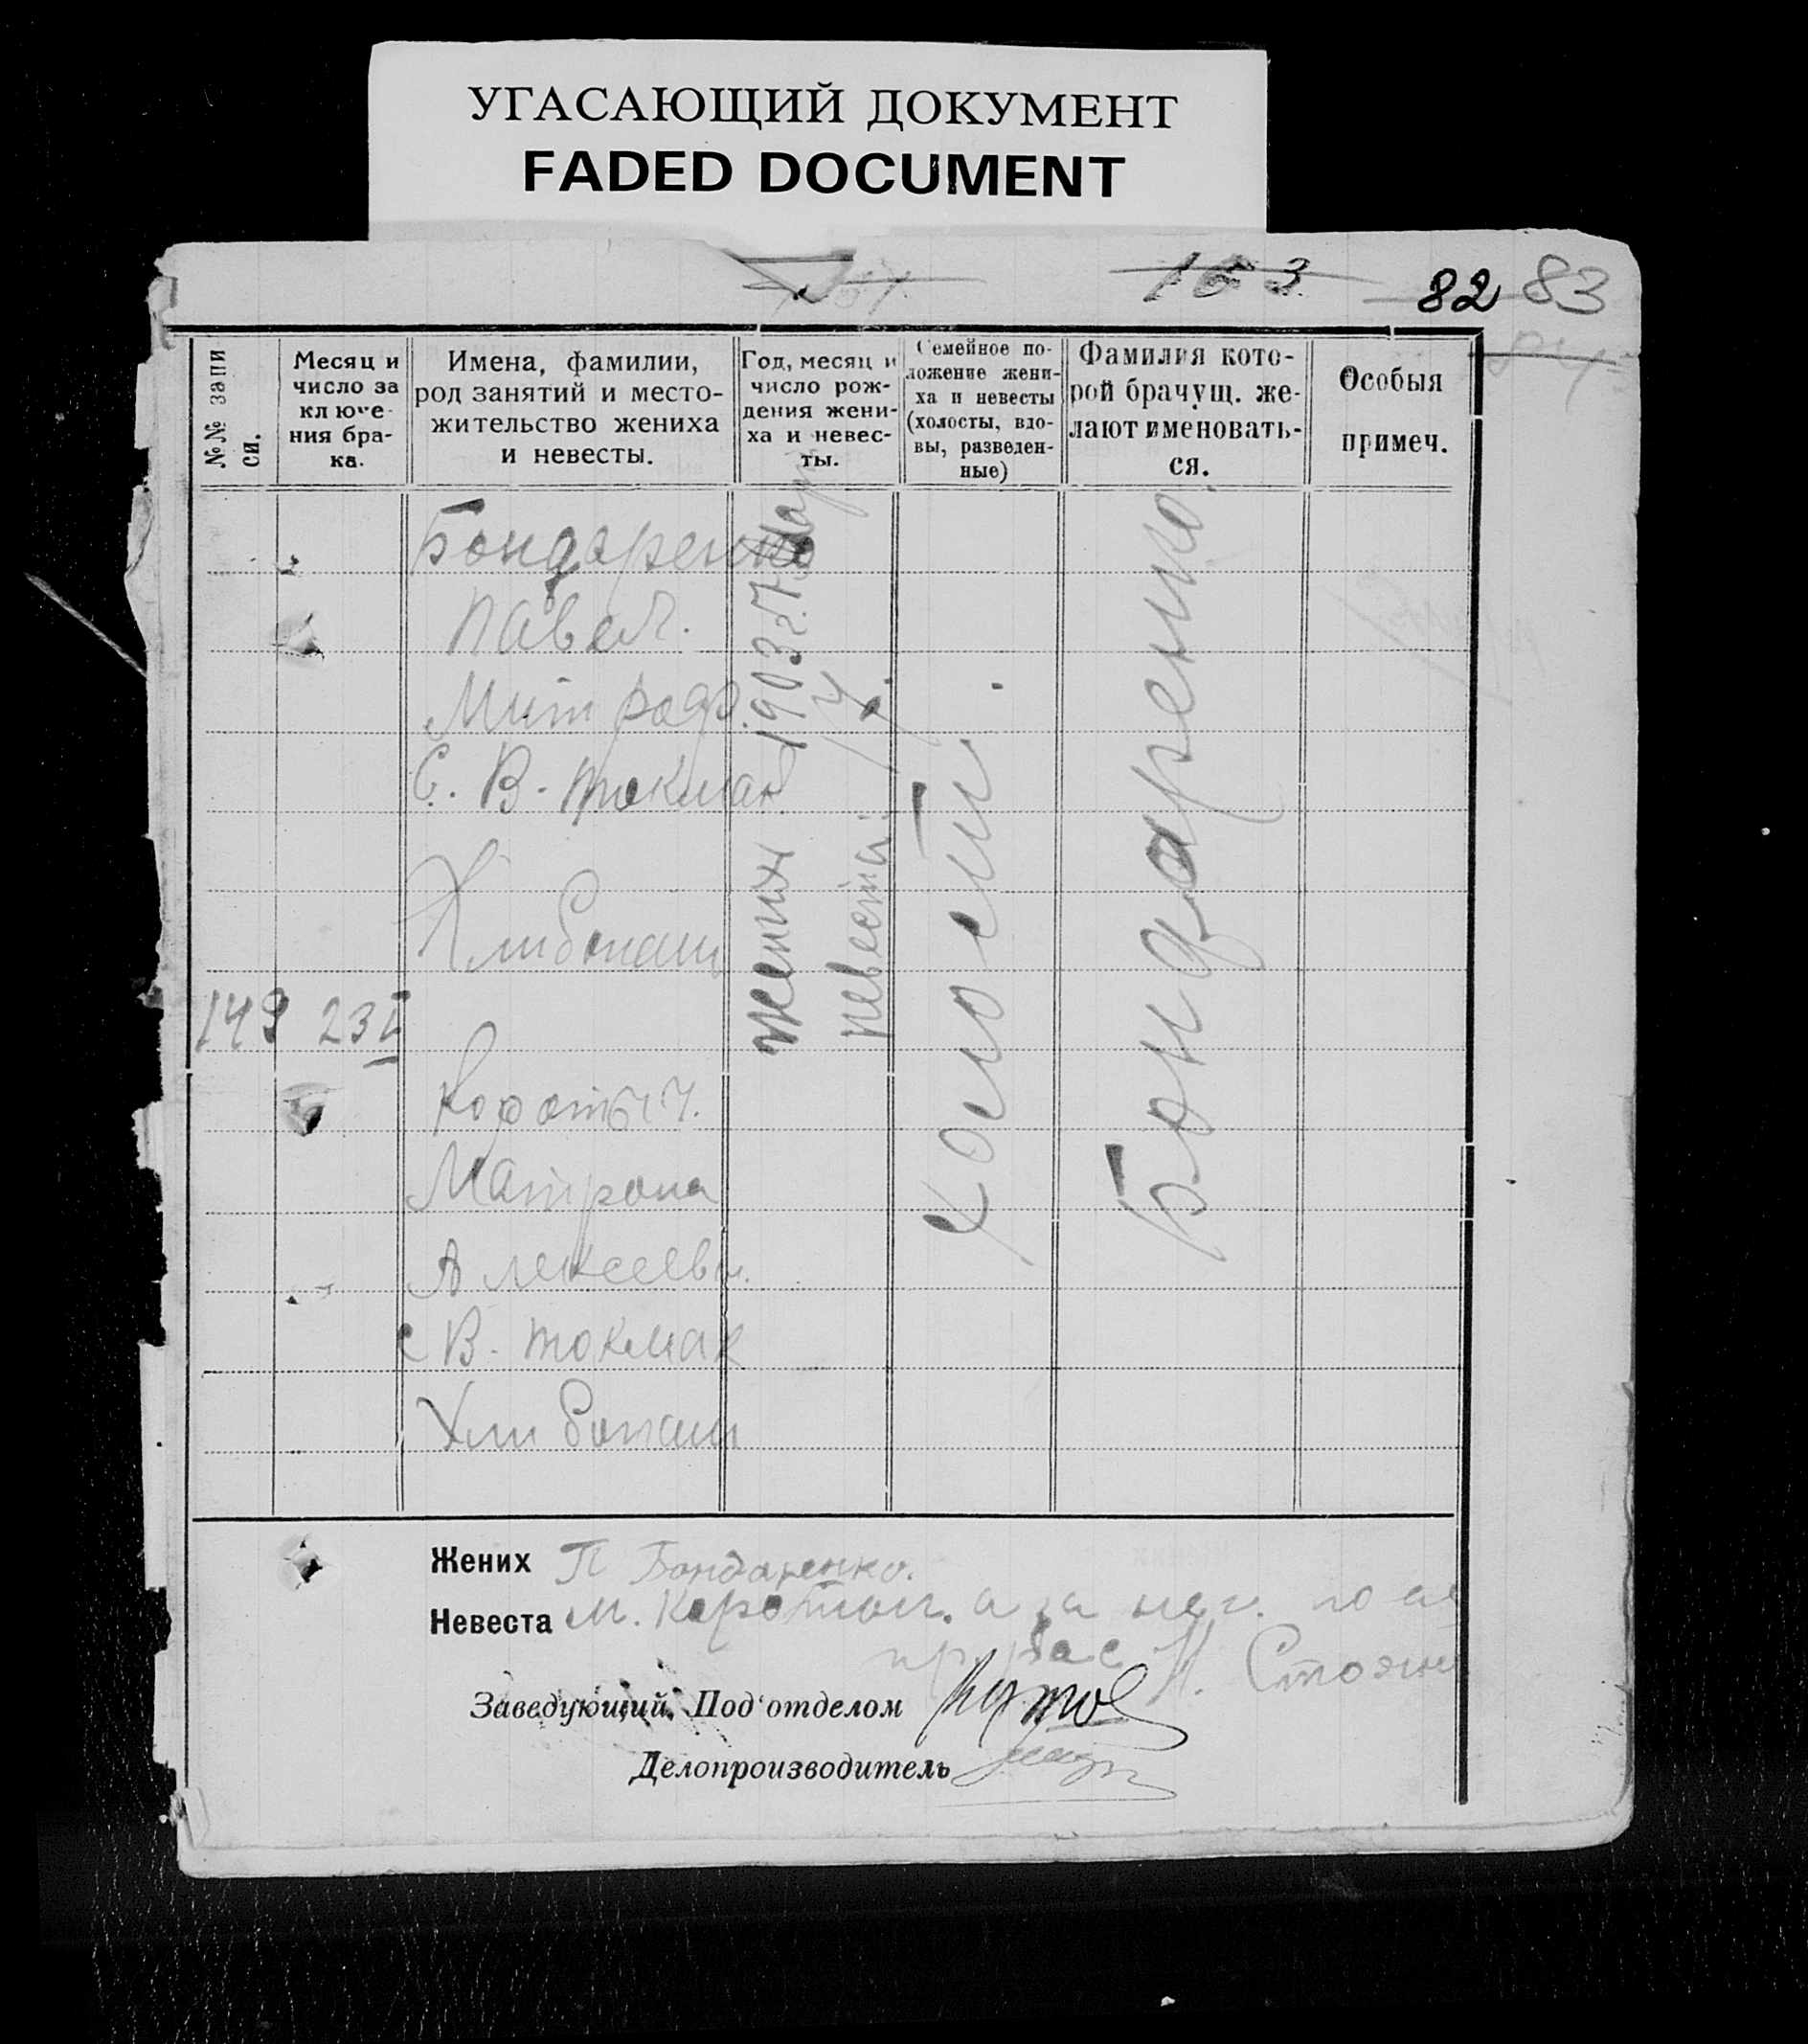 УГАСАЮЩИЙ ДОКУМЕНТ
FADED DOCUMENT
153
82 83
№№ запи си.
Месяц и число за ключения брака.
Имена, фамилии, род занятий и местожительство жениха и невесты.
Год, месяц и число рождения жениха и невесты.
Семейное положение жениха и невесты (холосты, вдовы, разведенные)
Фамилия которой брачущ. желают именоваться.
Особыя примеч.
Бондаренко
Павел.
Митроф.
С. В. Токмак
Хлибопаш
149 23 I
Коротыч.
Матрона
Алексеевн.
с В. Токмак
Хлибопаш
жених 1903 г. 7
невеста.
холости.
Бондаренко.
Жених П Бондаренко.
Невеста М. Коротыч. а за нег. по ее
прозбе Н. Стоян
Заведующий Под'отделом
Делопроизводитель